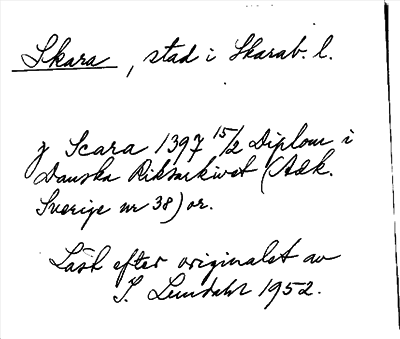 Skara, stad i Skarab. l.
j Scara 1397 15/2 Diplom i
Danska Riksarkivet (Adk.
Sverige nr 38) or.
Läst efter originalet av
I. Lundahl 1952.